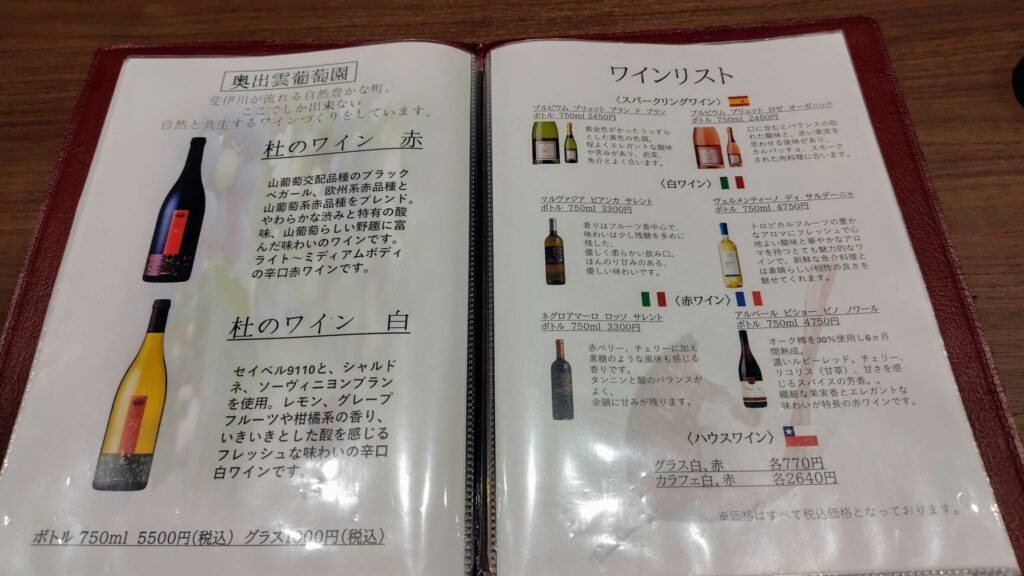 奥出雲葡萄園
斐伊川が流れる自然豊かな町。
ここでしか出来ない
自然と共生するワインづくりをしています。
杜のワイン 赤
山葡萄交配品種のブラック
ペガール、欧州系赤品種と
山葡萄系赤品種をブレンド。
やわらかな渋みと特有の酸
味、山葡萄らしい野趣に富
んだ味わいのワインです。
ライト～ミディアムボディ
の辛口赤ワインです。
杜のワイン 白
セイベル9110と、シャルド
ネ、ソーヴィニヨンブラン
を使用。レモン、グレープ
フルーツや柑橘系の香り、
いきいきとした酸を感じる
フレッシュな味わいの辛口
白ワインです。
ボトル 750ml 5500円(税込) グラス1000円(税込)
ワインリスト
〈スパークリングワイン〉
ブルビウム ブリュット ブラン ド ブラン
ボトル 750ml 2450円
黄金色がかったうっすら
とした黄色の色調。
程よくエレガントな酸味
や苦みがあり、前菜、
魚介とよく合います。
ブルビウム ブリュット ロゼ オーガニック
ボトル 750ml 2450円
口に含むとバランスの取
れた酸味と、赤い果実を
思わせる後味があり、
カルパッチョ、スモーク
された肉料理に合います。
〈白ワイン〉
マルヴァジア ビアンカ サレント
ボトル 750ml 3300円
香りはフルーツ香中心で、
味わいは少し残糖を多めに
残した、
優しく柔らかい飲み口。
ほんのり甘みのある、
優しい味わいです。
ヴェルメンティーノ ディ サルデーニャ
ボトル 750ml 4750円
トロピカルフルーツの豊か
なアロマにフレッシュで心
地よい酸味と華やかなアロ
マを持つとても魅力的なワ
インで、新鮮な魚介料理と
は素晴らしい相性の良さを
魅せてくれます。
〈赤ワイン〉
ネグロアマーロ ロッソ サレント
ボトル 750ml 3300円
赤ベリー、チェリーに加え
黒糖のような風味も感じる
香りです。
タンニンと酸のバランスが
よく、
余韻に甘みが残ります。
アルベール ビショー ピノ ノワール
ボトル 750ml 4750円
オーク樽を30%使用し6ヵ月
間熟成。
濃いルビーレッド。チェリー、
リコリス（甘草）、甘さを感
じるスパイスの芳香。。
繊細な果実香とエレガントな
味わいが特長の赤ワインです。
〈ハウスワイン〉
グラス白、赤 各770円
カラフェ白、赤 各2640円
※価格はすべて税込価格となっております。